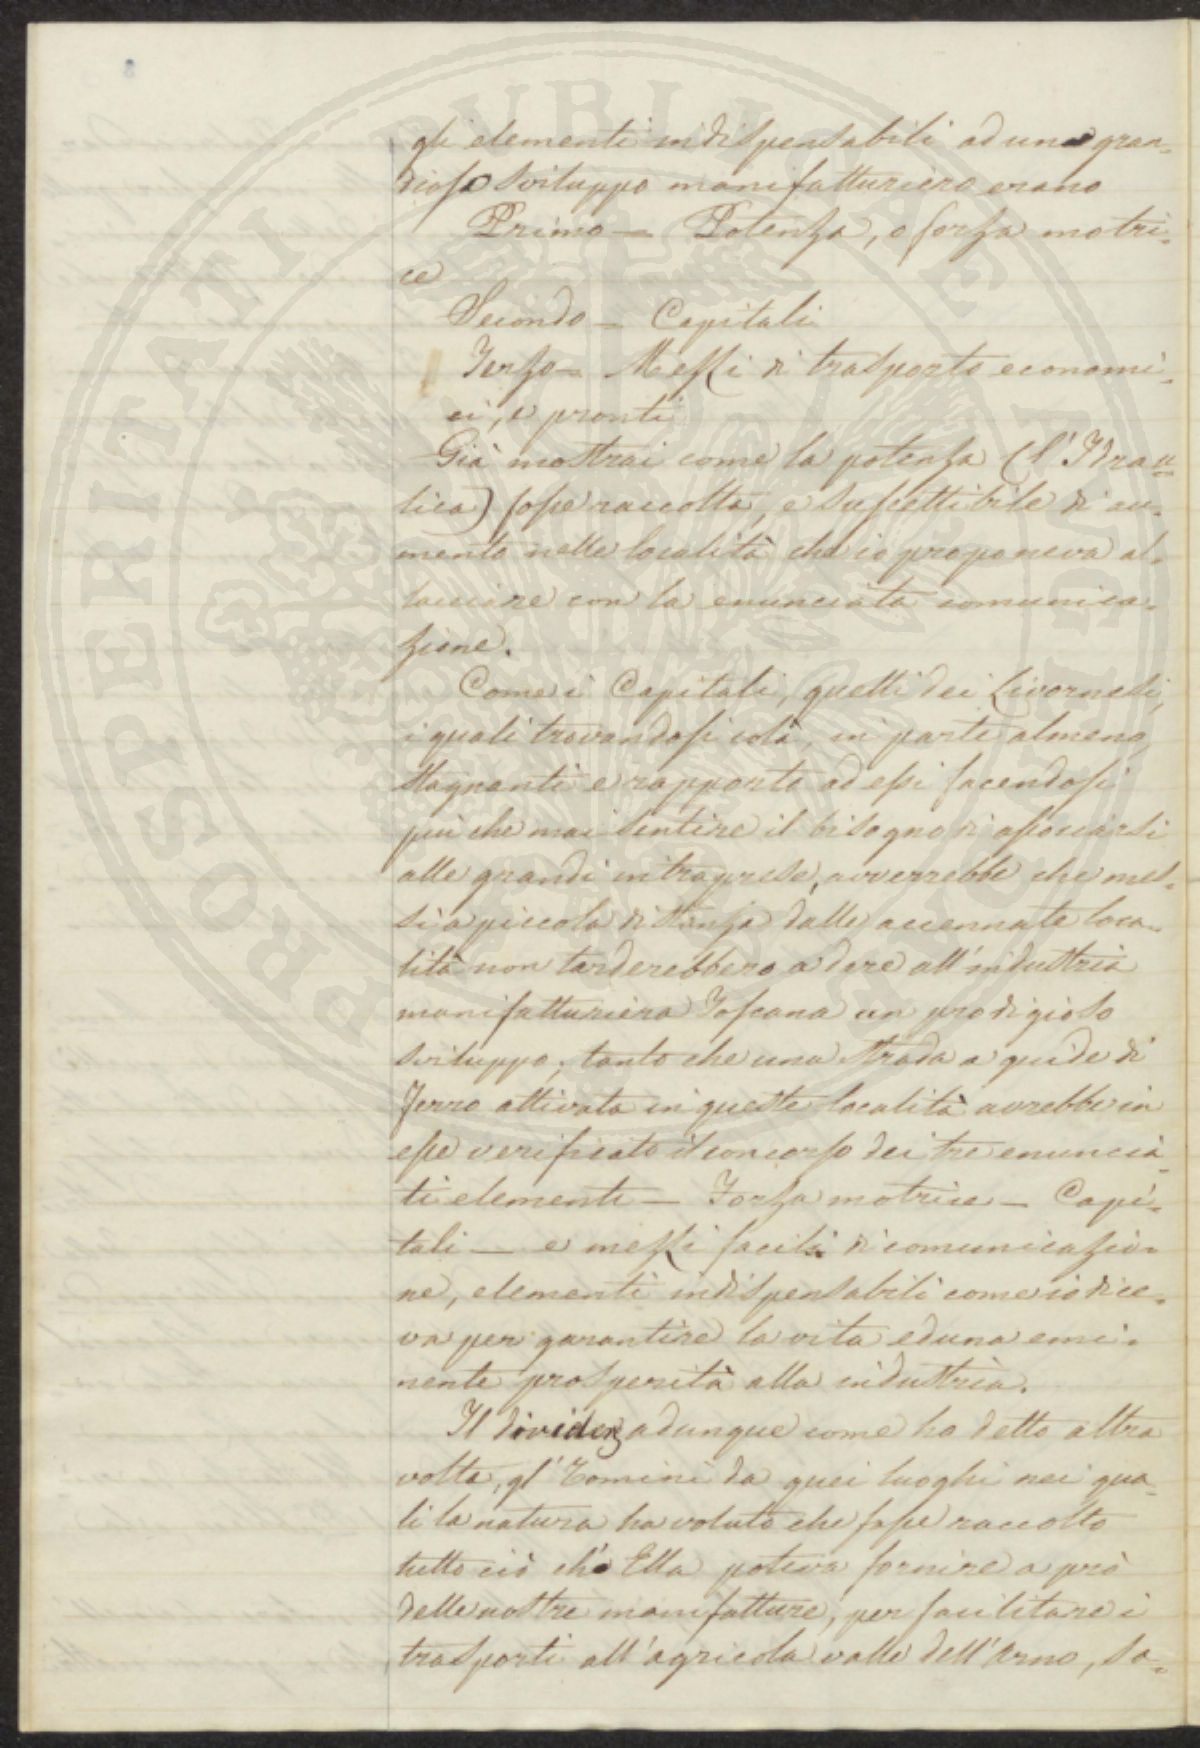 8
gli elementi indispensabili ad uno gran-
dioso sviluppo manifatturiero erano
Primo — Potenza, o forza motri-
ce
Secondo — Capitali
Terzo — Mezzi di trasporto economi-
ci, e pronti
Già mostrai come la potenza (l'Idrau-
lica) fosse raccolta, e suscettibile di au-
mento nelle località che io proponeva al-
lacciare con la enunciata comunica-
zione.
Come i Capitali, quelli dei Livornesi,
i quali trovandosi colà, in parte almeno,
stagnanti e rapporto ad essi facendosi
più che mai sentire il bisogno di associarsi
alle grandi intraprese, avverrebbe che mes-
si a piccola distanza dalle accennate loca-
lità non tarderebbero a dare all'industria
manifatturiera Toscana un prodigioso
sviluppo; tanto che una strada a guide di
ferro attivata in queste località avrebbe in
esse verificato il concorso dei tre enuncia-
ti elementi — Forza motrice — Capi-
tali — e mezzi facili di comunicazio-
ne, elementi indispensabili come io dice-
va per garantire la vita ed una emi-
nente prosperità alla industria.
Il divider adunque come ho detto altra
volta, gl'Uomini da quei luoghi nei qua-
li la natura ha voluto che fosse raccolto
tutto ciò ch'Ella poteva fornire a prò
delle nostre manifatture, per facilitare i
trasporti all'agricola valle dell'Arno, sa-
PROSPERITATI PVBLICAE AVGENDAE